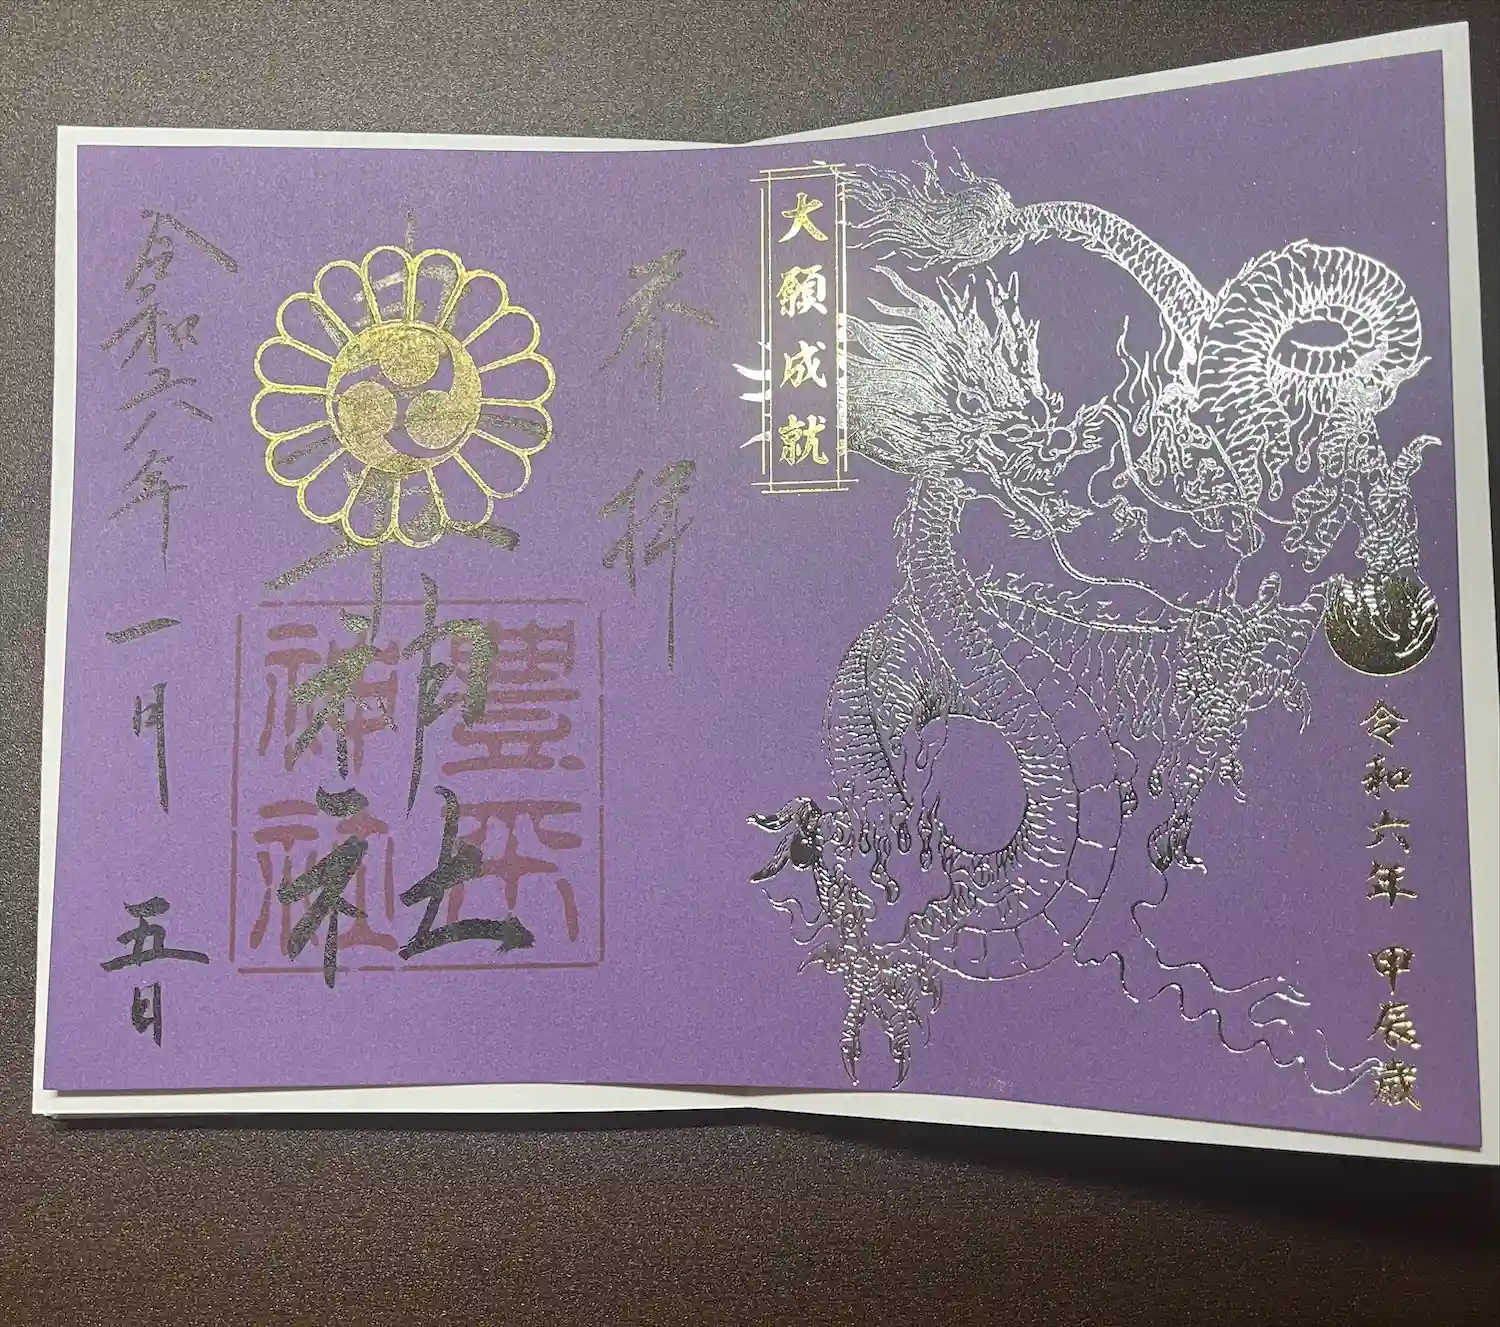 令和六年 甲辰歳
大願成就
奉拝
豊平神社
豊平
神社
令和六年一月五日